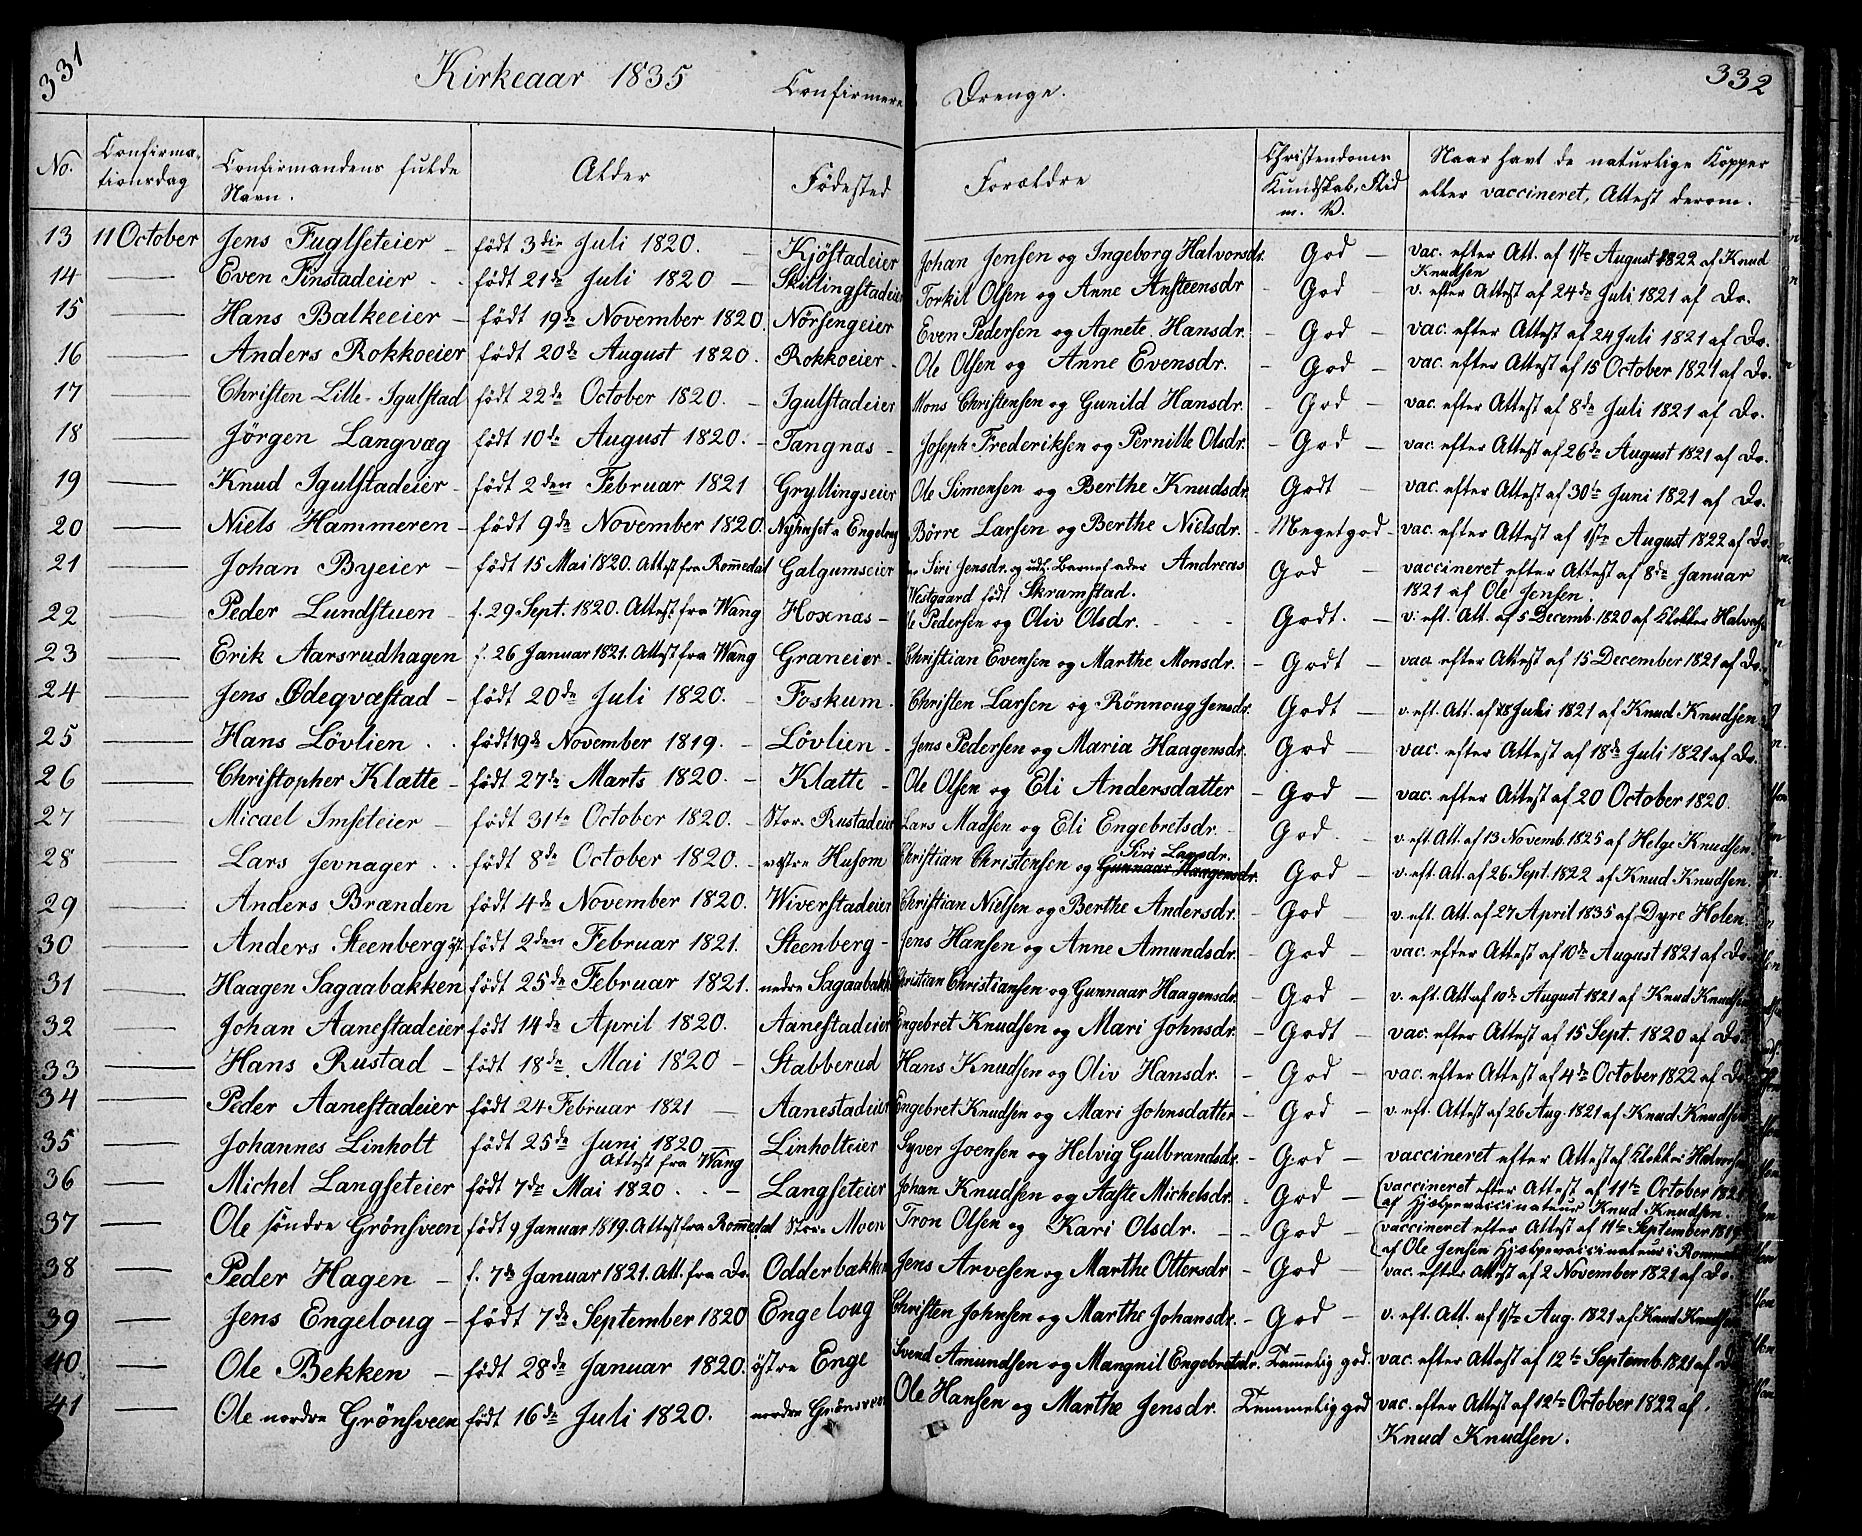 331
Kirkeaar 1835 Confirmere Drenge. 332
No. Confirmationsdag Confirmandens fulde Navn. Alder Födested Forældre Christendoms Kundskab, Flid m. V. Naar havt de naturlige Kopper eller vaccineret, Attest derom.
13 11 October Jens Fuglseteier – födt 3die Juli 1820. – Kjöstadeier Johan Jensen og Ingeborg Halvorsdr. God – vac. efter Att. af 1ste August 1822 af Knud Knudsen
14 — Even Finstadeier – födt 21de Juli 1820 – Skillingstadeier Torkil Olsen og Anne Ansteensdr – God – v. efter Attest af 24de Juli 1821 af Do.
15 — Hans Balkeeier – födt 19de November 1820 Nörsengeier Even Pedersen og Agnete Hansdr. God – vac. efter Attest af 24 Juli 1821 af Do.
16 — Anders Rokkoeier födt 20de August 1820. Rokkoeier – Ole Olsen og Anne Evensdr. – God – vac. efter Attest af 15 October 1821 af Do.
17 — Christen Lille-Igulstad födt 22de October 1820. – Igulstadeier Mons Christensen og Gunild Hansdr. – God – vac. efter Attest af 8de Juli 1821 af Do.
18 — Jörgen Langvæg födt 10de August 1820. – Tangnas – Joseph Frederiksen og Pernille Olsdr. – God – vac. efter Attest af 26de August 1821 af Do.
19 — Knud Igulstadeier – födt 2den Februar 1821 Gryllingseier Ole Simensen og Berthe Knudsdr. Godt – vac. efter Attest af 30te Juni 1821 af Do.
20 — Niels Hammeren – födt 9de November 1820. Nyhuset u Engeloug Börre Larsen og Berthe Nielsdr. – Meget god – vac. efter Attest af 1ste August 1822 af Do.
21 — Johan Byeier – födt 15 Mai 1820. Attest fra Romedal Galgumseier Siri Jensdr. og udl. Barnefader Andreas Westgaard födt Skramstad. God – vaccineret efter Attest af 8de Januar 1821 af Ole Jensen.
22 — Peder Lundstuen – f. 29 Sept. 1820. Attest fra Wang Hoxnas – Pedersen og Oliv Olsdr. – – – Godt. – v. eft. Att. af 5 Decemb. 1820 af Klokker Halvors.
23 — Erik Aarsrudhagen f. 26 Januar 1821. Attest fra Wang Graneier – Christian Evensen og Marthe Monsdr. – Godt – vac. efter Attest af 15 December 1821 af Do.
24 — Jens Ödegvæstad – födt 20de Juli 1820. – Foskum. Christen Larsen og Rönnoug Jensdr. Godt – v. eft. Att. af 28 Juli 1821 af Knud Knudsen
25 — Hans Lövlien . . födt 19de November 1819. – Lövlien – Jens Pedersen og Maria Haagensdr. God – vac. efter Attest af 18de Juli 1821 af Do.
26 — Christopher Klatte – födt 27de Marts 1820. – Klatte – Ole Olsen og Eli Andersdatter – God – vac. efter Attest af 20 October 1820.
27 — Micael Imseteier – födt 31te October 1820. – Stor. Rustadeier Lars Madsen og Eli Engebretsdr. – God – v. eft. Att. af 13 Novemb. 1825 af Helge Knudsen
28 — Lars Jevnager . . födt 8de October 1820. – vestre Husom Christian Christensen og Gunnaar Haagensdr. Siri Larsdr. God – v. eft. Att. af 26 Sept. 1822 af Knud Knudsen.
29 — Anders Brænden födt 4de November 1820. Wiverstadeier Christian Nielsen og Berthe Andersdr. – God – v. eft. Att. af 27 April 1835 af Dyre Holen.
30 — Anders Steenberg öst. födt 2den Februar 1821. Steenberg – Jens Hansen og Anne Amundsdr. – God – vac. efter Attest af 10de August 1821 af Do.
31 — Haagen Sagaabakken födt 25de Februar 1821. nedre Sagaabakken Christian Christiansen og Gunnaar Haagensdr. – God – v. eft. Att af 10de August 1821 af Knud Knudsen
32 — Johan Aanestadeier födt 14de April 1820. Aanestadeier Engebret Knudsen og Mari Johnsdr. – Godt – vac. efter Attest af 15 Sept. 1820 af Do.
33 — Hans Rustad – födt 18de Mai 1820 – Stabberud Hans Knudsen og Oliv Hansdr. – God – vac. efter Attest af 4de October 1822 af Do.
34 — Peder Aanestadeier födt 24 Februar 1821 — Aanestadeier Engebret Knudsen og Mari Johnsdatter – God – v. eft. Attest af 26 Aug. 1821 af Knud Knudsen
35 — Johannes Linholt födt 25de Juni 1820 — Attest fra Wang Linholteier Syver Joensen og Helvig Gulbrandsdr. – God – vaccineret efter Attest af Klokker Halvorsen
36 — Michel Langseteier födt 7de Mai 1820 . . – Langseteier Johan Knudsen og Aaste Michelsdr. – God – vaccineret efter Attest af 11te October 182 af Hjelpevaccinateur Knud Knudsen.
37 — Ole söndre Grönsveen födt 9 Januar 1819. Attest fra Romedal Store Moen Tron Olsen og Kari Olsdr. – God – vaccineret efter Attest af 11te September 1819 af Ole Jensen Hjelpevaccinateur i Rommedal
38 — Peder Hagen – f. 7de Januar 1821. Att. fra Do. Odderbakken Jens Arvesen og Marthe Ottersdr – God – vac. efter Attest af 2 November 1821 af Do.
39 — Jens Engeloug – födt 7de September 1820 Engeloug Christen Johnsen og Marthe Johansdr. – God – v. eft. Att. af 1ste Aug. 1821 af Knud Knudsen
40 — Ole Bekken – födt 28de Januar 1820. östre Enge Svend Amundsen og Mangnil Engebretsdr. Temmelig god. vac. efter Attest af 12te Septemb. 1821 af Do
41 — Ole nordre Grönsveen födt 16de Juli 1820. nordre Grönsveen Ole Hansen og Marthe Jensdr. Temmelig god vac. efter Attest af 12te October 1822 af Knud Knudsen.